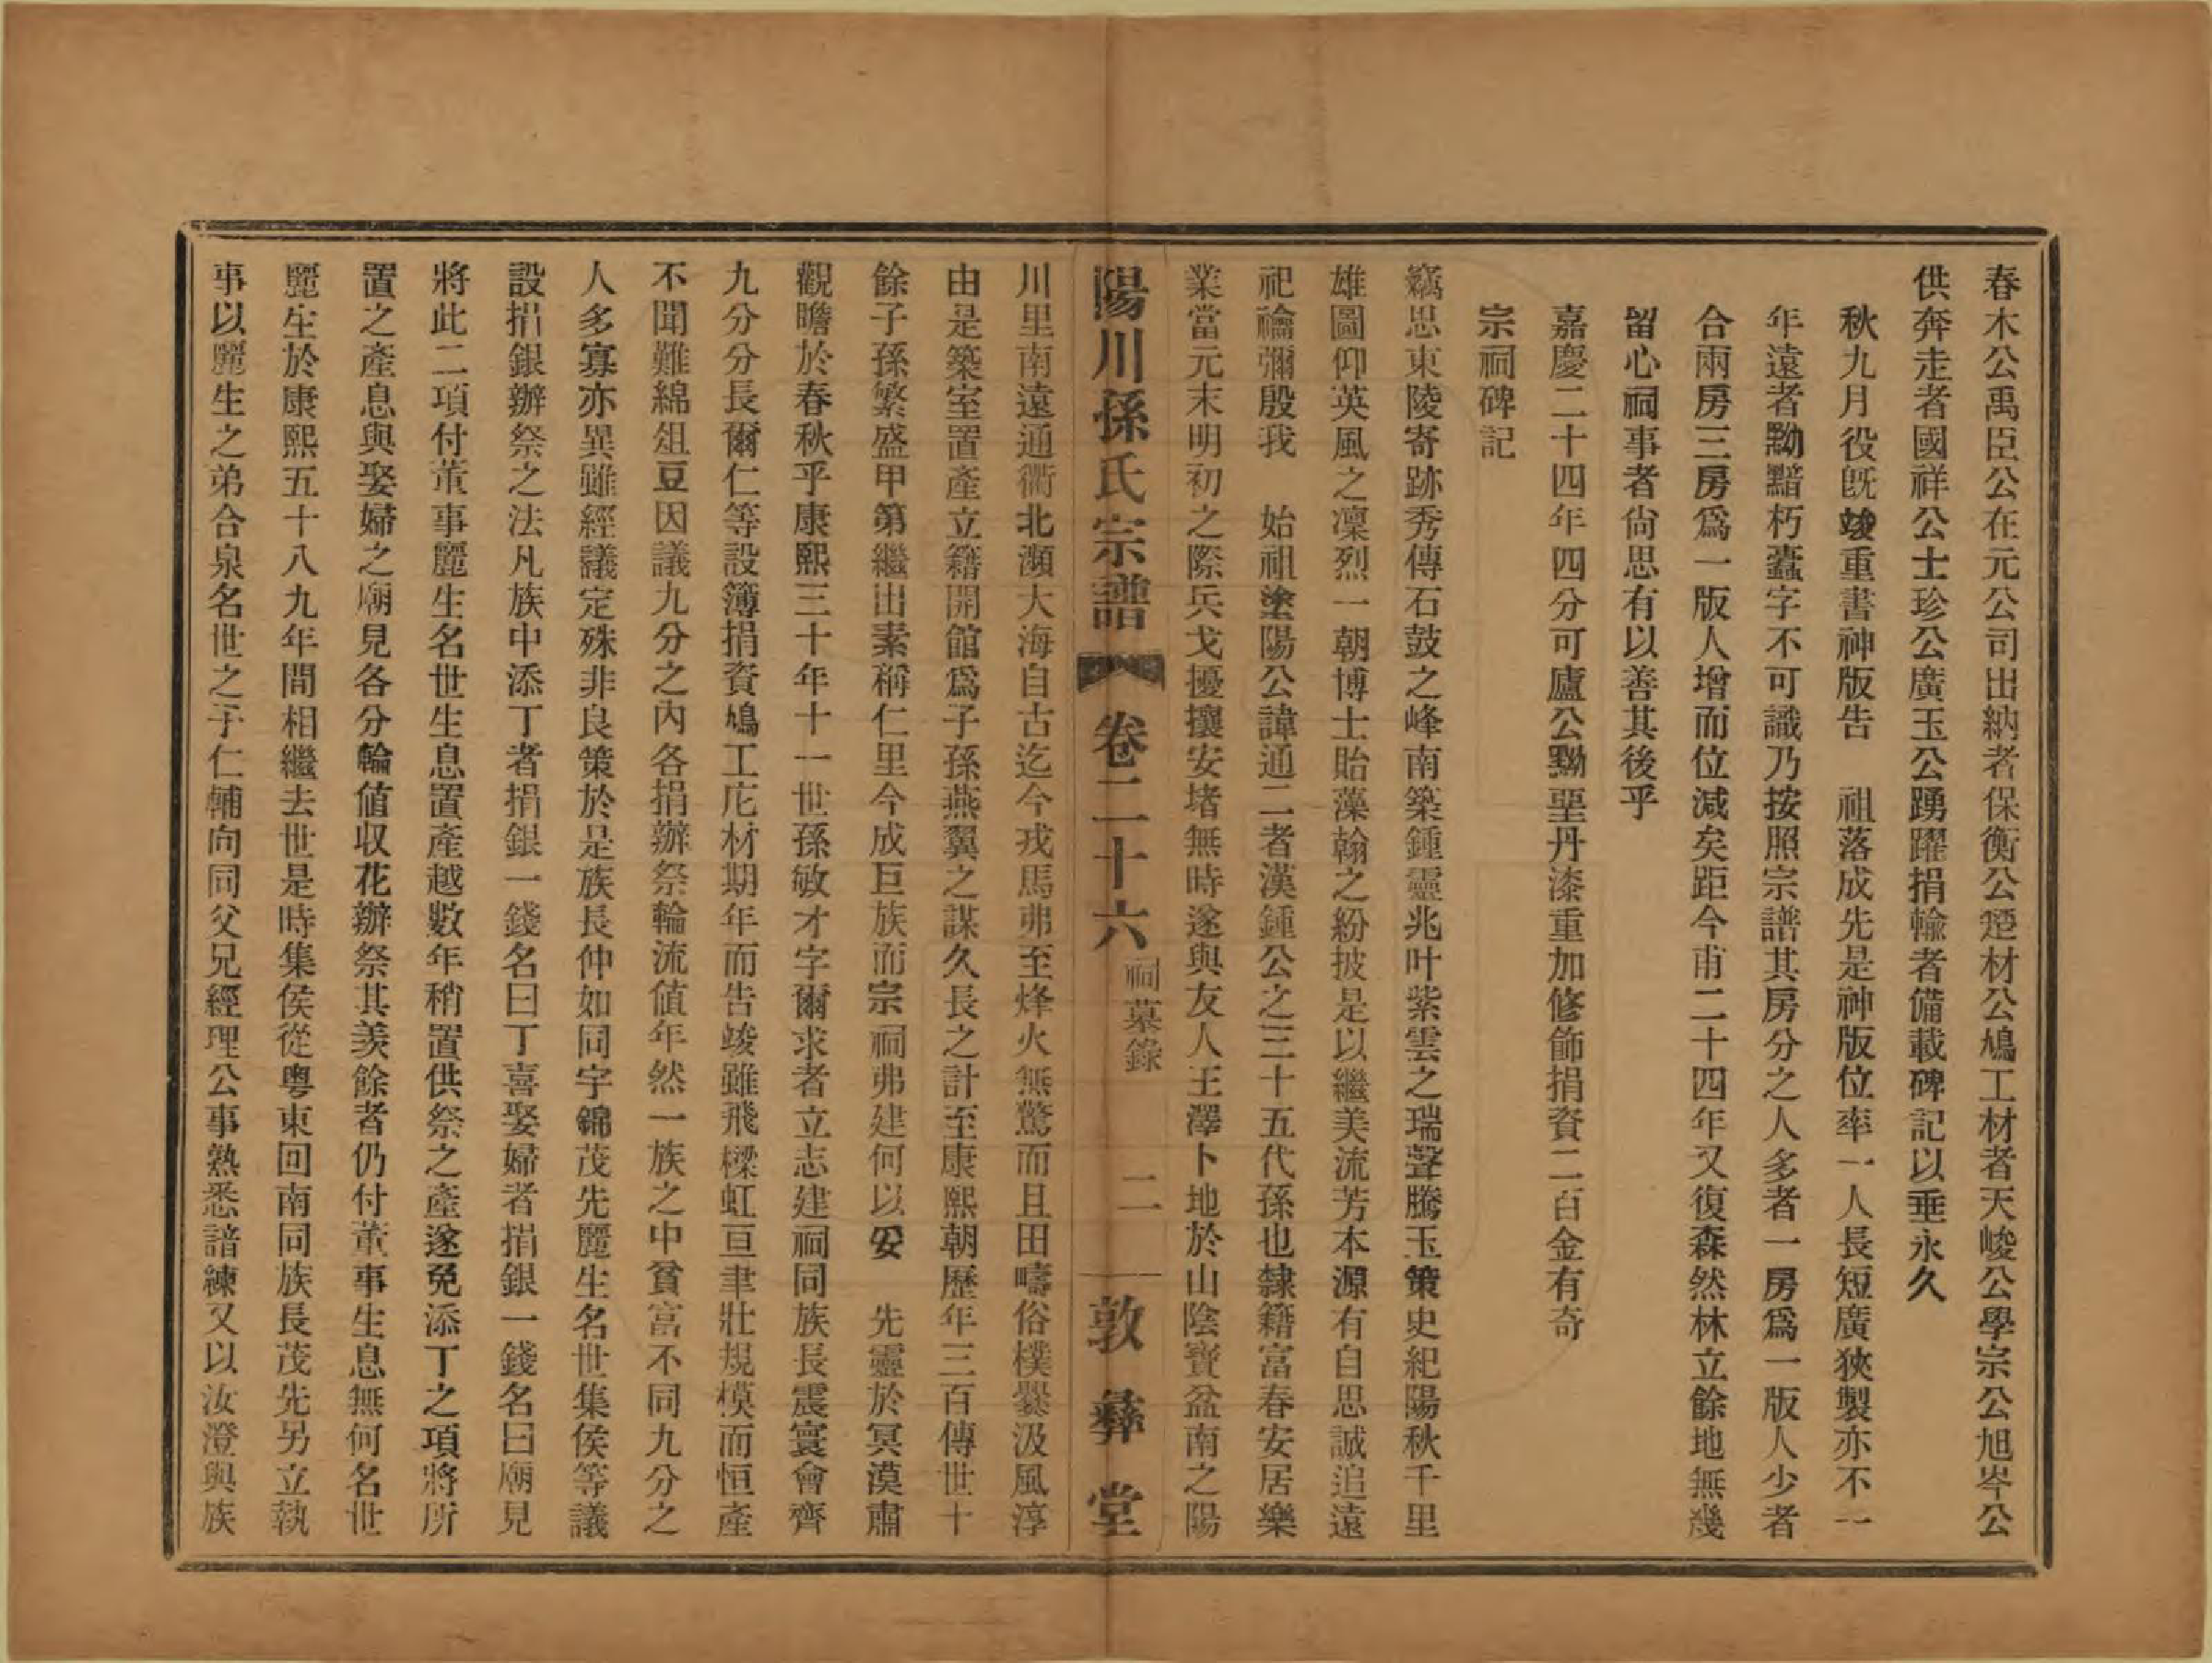 春木公禹臣公在元公司出納者保衡公蹙材公鳩工材者天峻公學宗公旭岑公
供奔走者國祥公士珍公廣玉公踴躍捐輸者備載碑記以垂永久
秋九月役旣竣重書神版告　祖落成先是神版位率一人長短廣狹製亦不一
年遠者黝黯朽蠹字不可識乃按照宗譜其房分之人多者一房爲一版人少者
合兩房三房爲一版人增而位減矣距今甫二十四年又復森然林立餘地無幾
留心祠事者尙思有以善其後乎
嘉慶二十四年四分可廬公黝堊丹漆重加修飾捐資二百金有奇
宗祠碑記
竊思東陵寄跡秀傳石鼓之峰南築鍾靈兆叶紫雲之瑞聲騰玉策史紀陽秋千里
雄圖仰英風之凜烈一朝博士貽藻翰之紛披是以繼美流芳本源有自思誠追遠
祀禴彌殷我　始祖塗陽公諱通二者漢鍾公之三十五代孫也隸籍富春安居樂
業當元末明初之際兵戈擾攘安堵無時遂與友人王澤卜地於山陰寶盆南之陽
陽川孫氏宗譜　卷二十六　祠墓錄　二　敦彝堂
川里南遠通衢北瀕大海自古迄今戎馬弗至烽火無驚而且田疇俗樸爨汲風淳
由是築室置產立籍開館爲子孫燕翼之謀久長之計至康熙朝歷年三百傳世十
餘子孫繁盛甲第繼出素稱仁里今成巨族而宗祠弗建何以妥　先靈於冥漠肅
觀瞻於春秋乎康熙三十年十一世孫敏才字爾求者立志建祠同族長震寰會齊
九分分長爾仁等設簿捐資鳩工庀材期年而告竣雖飛樑虹亘聿壯規模而恒產
不聞難綿俎豆因議九分之內各捐辦祭輪流値年然一族之中貧富不同九分之
人多寡亦異雖經議定殊非良策於是族長仲如同宇錦茂先麗生名世集侯等議
設捐銀辦祭之法凡族中添丁者捐銀一錢名曰丁喜娶婦者捐銀一錢名曰廟見
將此二項付董事麗生名世生息置產越數年稍置供祭之產遂免添丁之項將所
置之產息與娶婦之廟見各分輪値収花辦祭其羨餘者仍付董事生息無何名世
麗生於康熙五十八九年間相繼去世是時集侯從粵東回南同族長茂先另立執
事以麗生之弟合泉名世之子仁輔向同父兄經理公事熟悉諳練又以汝澄與族